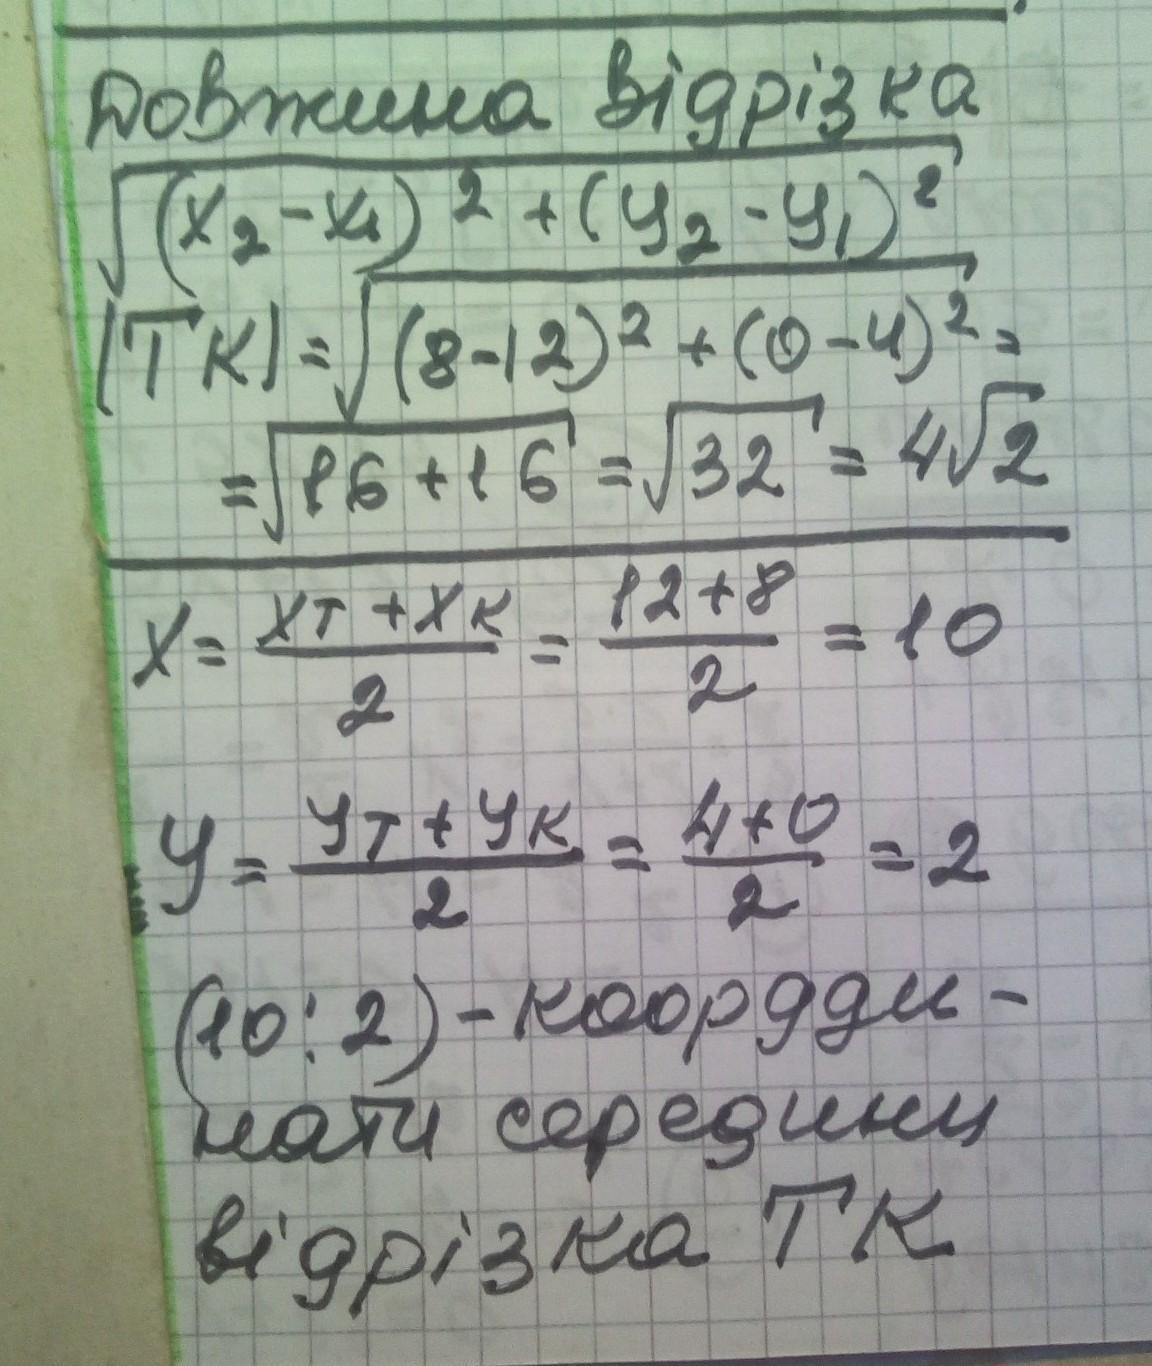 Довжина відрізка
√(x₂-x₁)²+(y₂-y₁)²
|TK|=√(8-12)²+(0-4)²=
=√16+16=√32=4√2
x=xт+xк/2=12+8/2=10
y=yт+yк/2=4+0/2=2
(10;2)-коордди-
нати середини
відрізка TK